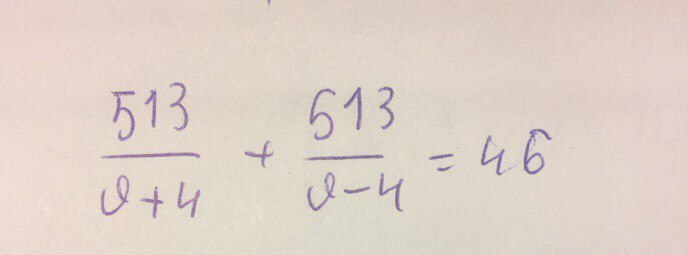 513/(υ+4) + 513/(υ-4) = 46